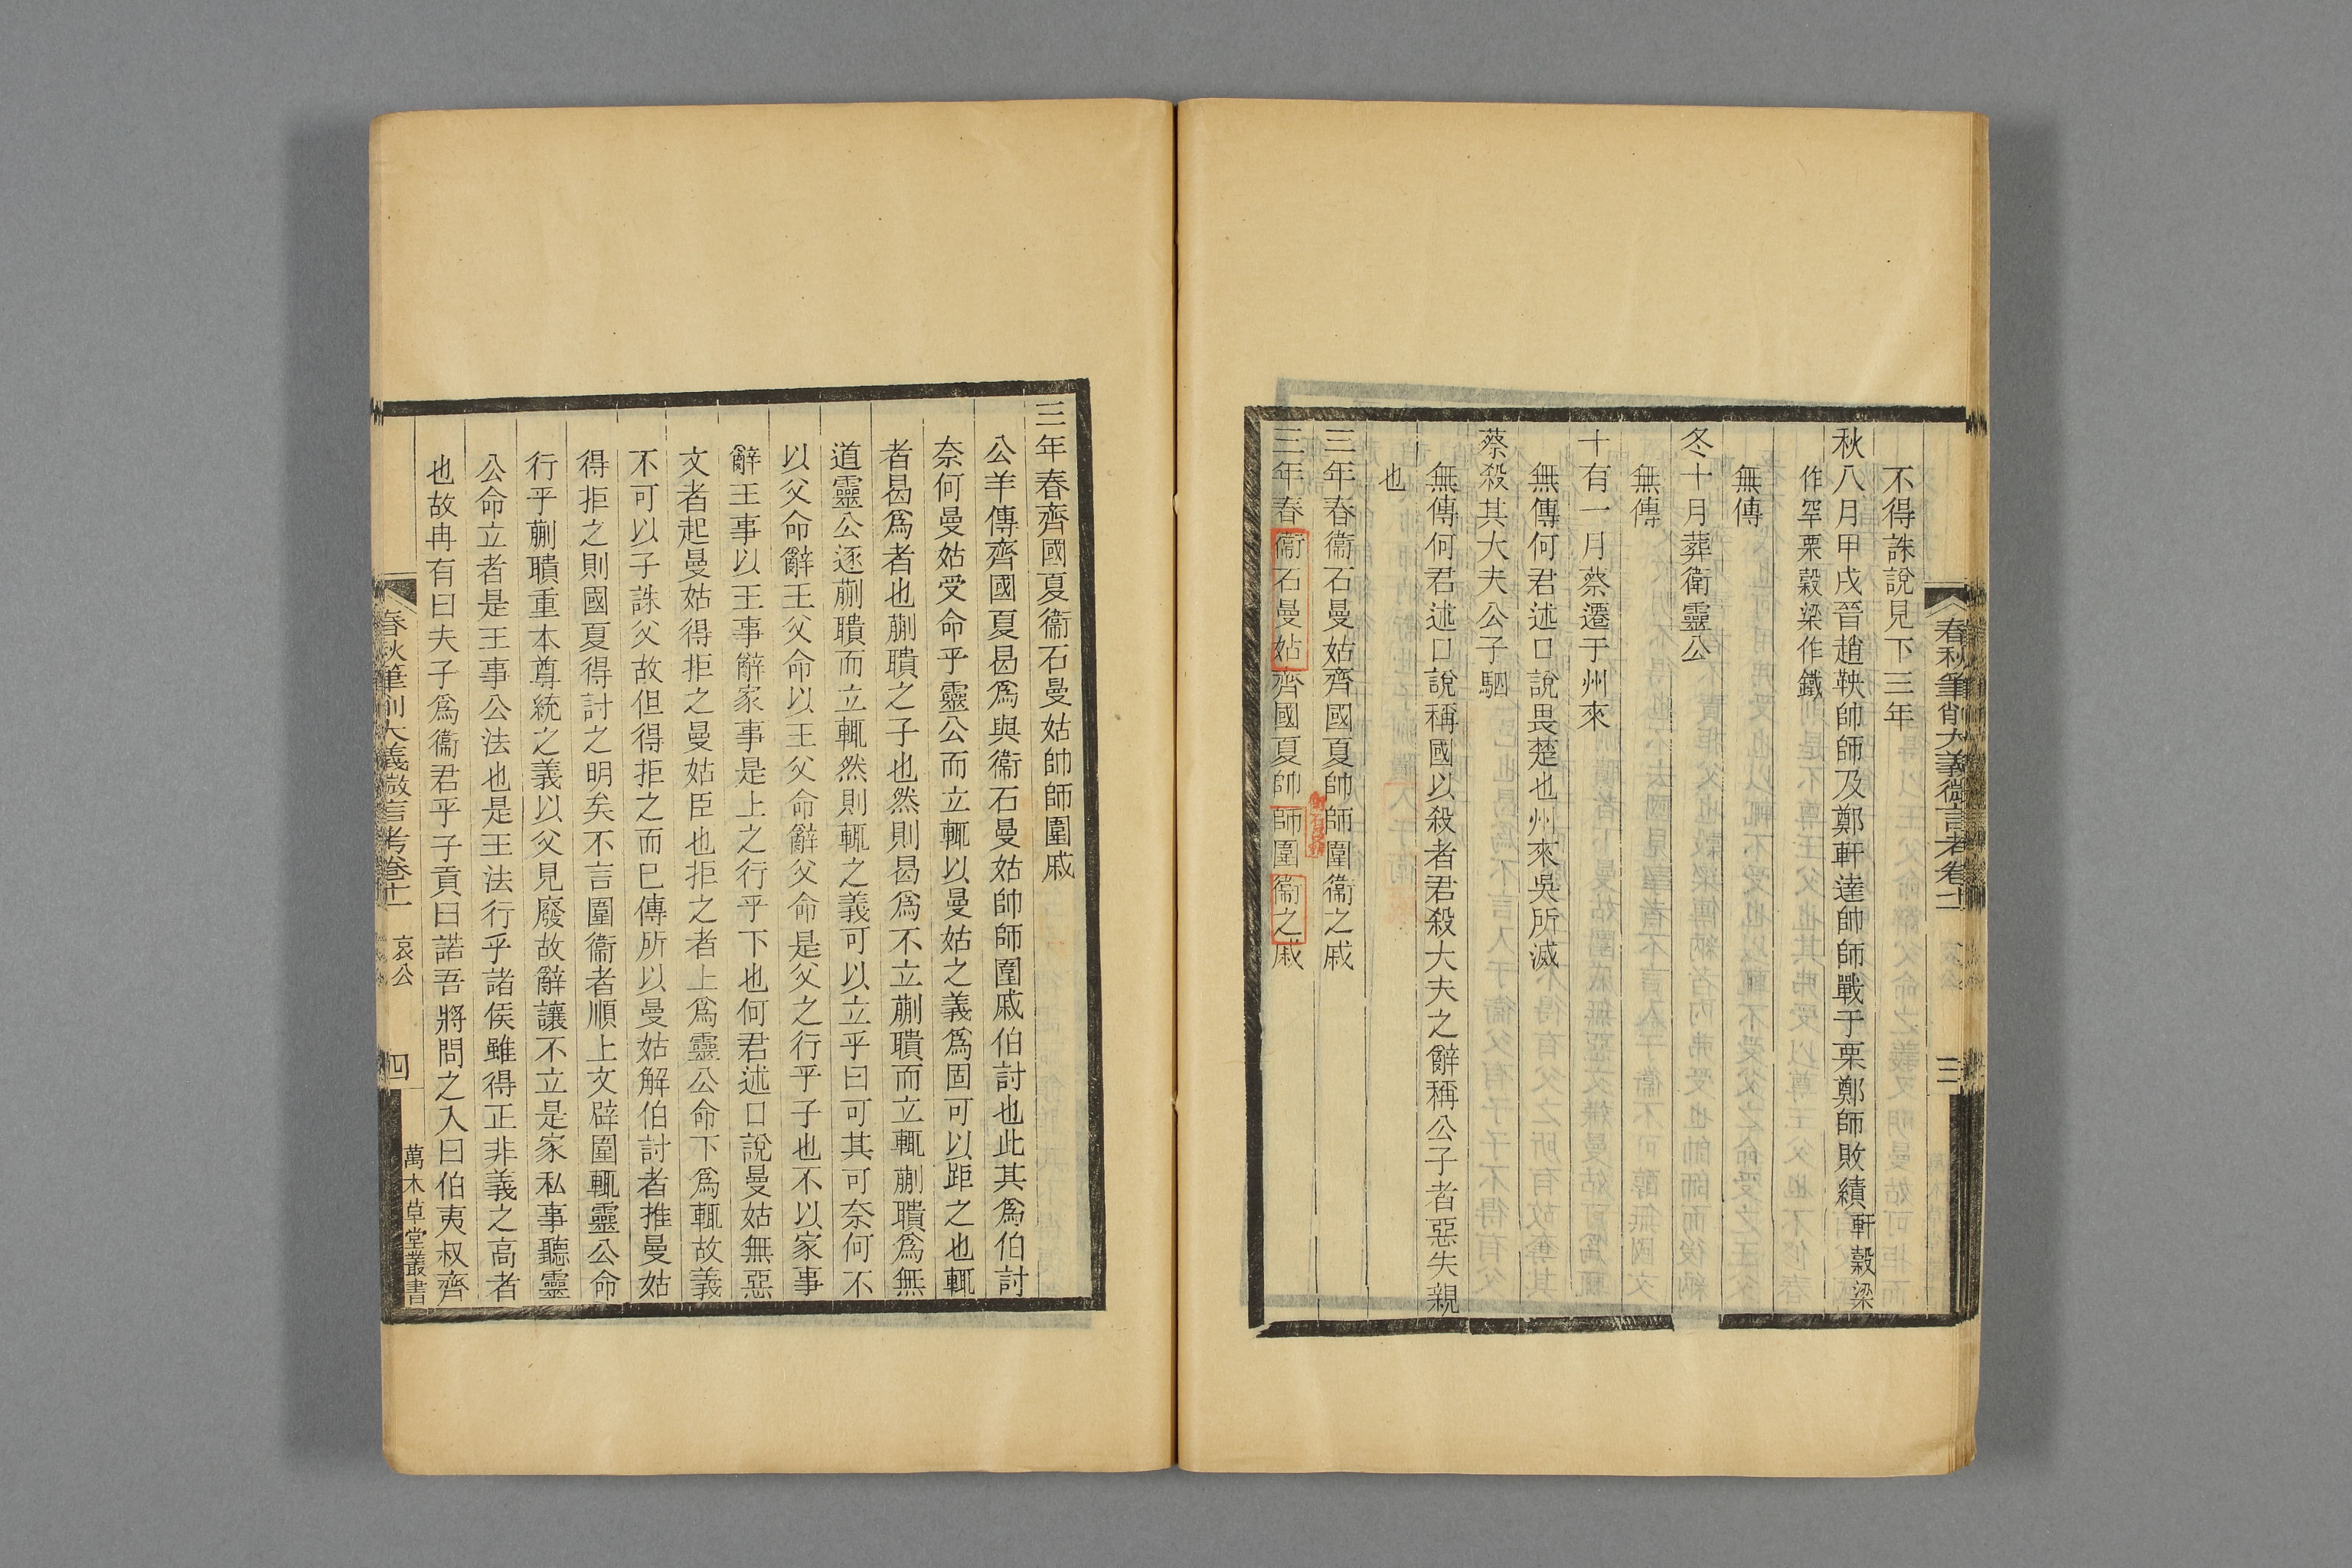 春秋筆削大義微言考卷十一
三
不得誅說見下三年
秋八月甲戌晉趙鞅帥師及鄭軒達帥師戰于栗鄭師敗績軒穀梁
作罕栗穀梁作鐵
無傳
冬十月葬衛靈公
無傳
十有一月蔡遷于州來
無傳何君述口說畏楚也州來吳所滅
蔡殺其大夫公子駟
無傳何君述口說稱國以殺者君殺大夫之辭稱公子者惡失親
也
三年春衞石曼姑齊國夏帥師圍衞之戚
三年春衞石曼姑齊國夏帥師圍衞之戚
三年春齊國夏衞石曼姑帥師圍戚
公羊傳齊國夏曷爲與衞石曼姑帥師圍戚伯討也此其爲伯討
奈何曼姑受命乎靈公而立輒以曼姑之義爲固可以距之也輒
者曷爲者也蒯聵之子也然則曷爲不立蒯聵而立輒蒯聵爲無
道靈公逐蒯聵而立輒然則輒之義可以立乎曰可其可奈何不
以父命辭王父命以王父命辭父命是父之行乎子也不以家事
辭王事以王事辭家事是上之行乎下也何君述口說曼姑無惡
文者起曼姑得拒之曼姑臣也拒之者上爲靈公命下爲輒故義
不可以子誅父故但得拒之而已傳所以曼姑解伯討者推曼姑
得拒之則國夏得討之明矣不言圍衞者順上文辟圍輒靈公命
行乎蒯聵重本尊統之義以父見廢故辭讓不立是家私事聽靈
公命立者是王事公法也是王法行乎諸侯雖得正非義之高者
也故冉有曰夫子爲衞君乎子貢曰諾吾將問之入曰伯夷叔齊
春秋筆削大義微言考卷十一
哀公
四
萬木草堂叢書